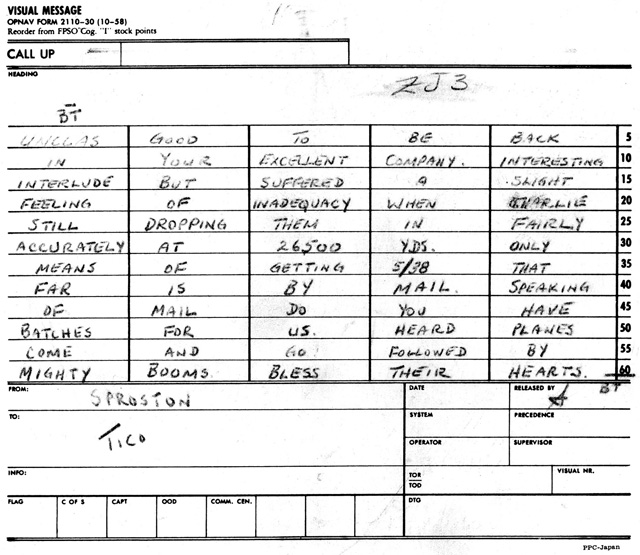 VISUAL MESSAGE
OPNAV FORM 2110-30 (10-58)
Reorder from FPSO "Cog. "I" stock points
CALL UP
HEADING
ZJ3
BT
UNCLAS GOOD TO BE BACK 5
IN YOUR EXCELLENT COMPANY. INTERESTING 10
INTERLUDE BUT SUFFERED A SLIGHT 15
FEELING OF INADEQUACY WHEN CHARLIE 20
STILL DROPPING THEM IN FAIRLY 25
ACCURATELY AT 26500 YDS. ONLY 30
MEANS OF GETTING 5/38 THAT 35
FAR IS BY MAIL. SPEAKING 40
OF MAIL DO YOU HAVE 45
BATCHES FOR US. HEARD PLANES 50
COME AND GO FOLLOWED BY 55
MIGHTY BOOMS. BLESS THEIR HEARTS. 60
FROM: SPROSTON DATE RELEASED BY BT
TO: TICO SYSTEM PRECEDENCE
OPERATOR SUPERVISOR
INFO: TOR TOD VISUAL NR.
FLAG C OF S CAPT OOD COMM. CEN. DTG
PPC-Japan